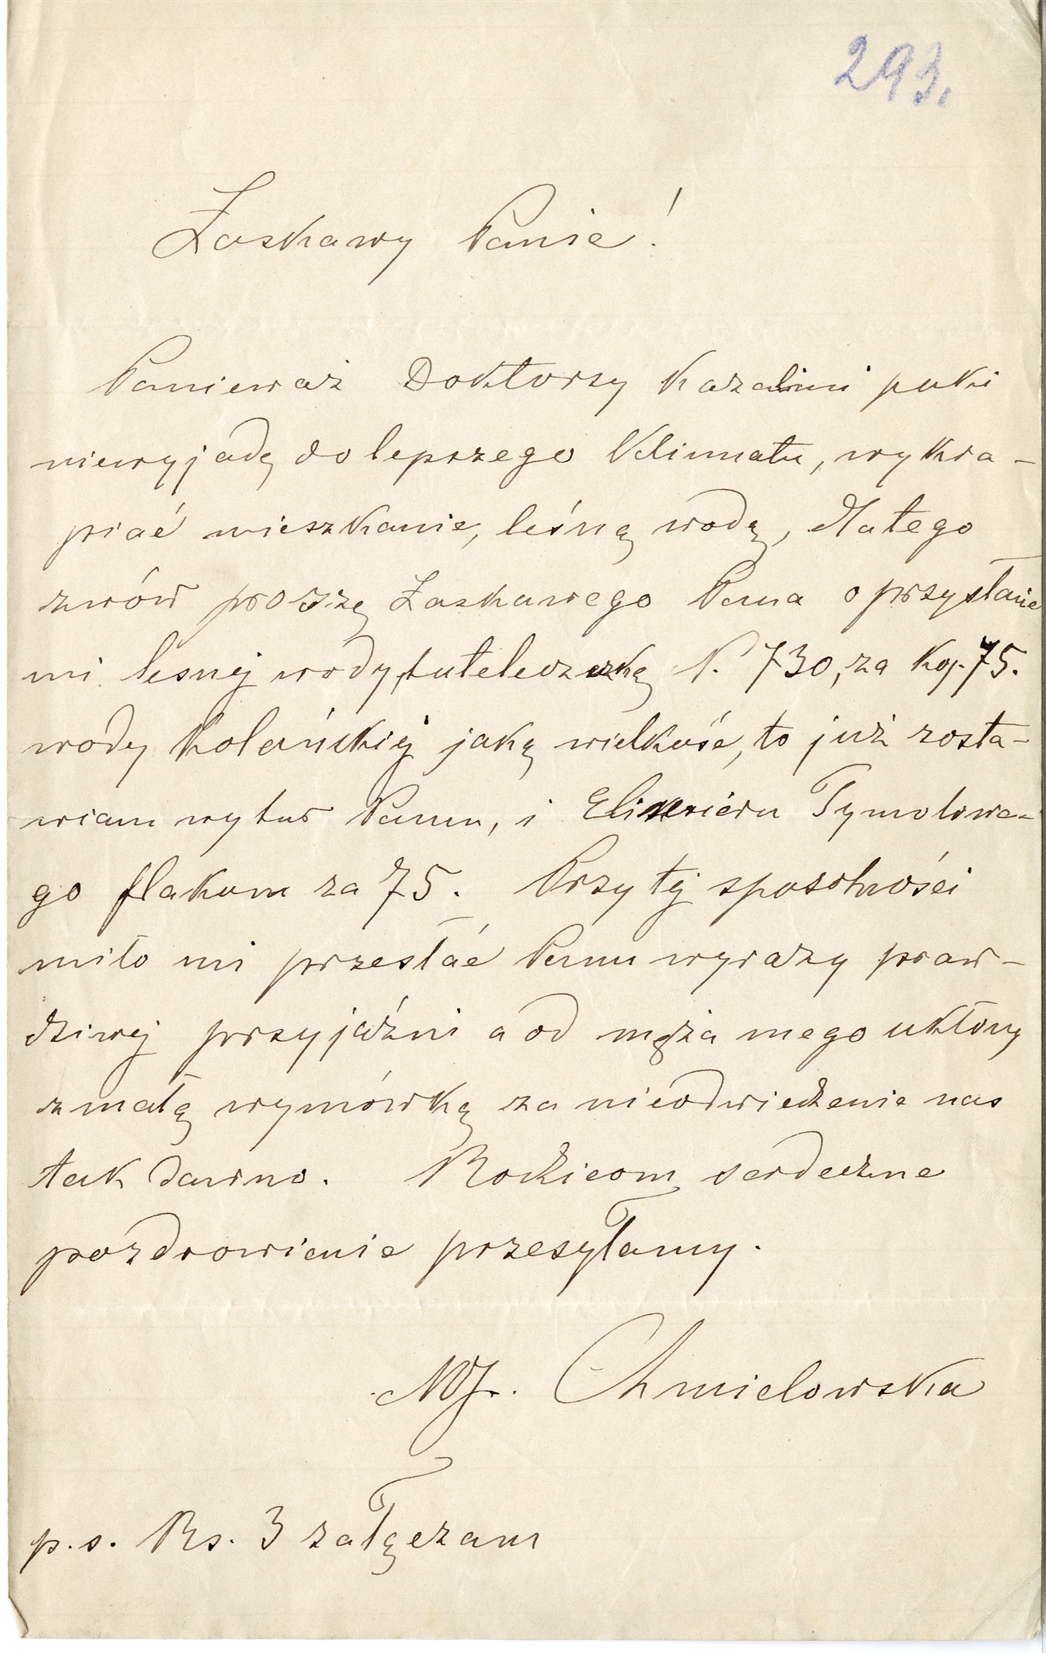 293.
Łaskawy Panie!
Panieważ Doktorzy kazalimi puki
niewyjadę do lepszego klimatu, wykra-
piać mieszkanie, leśną wodą, dlatego
znów proszę Łaskawego Pana o przysłanie
mi lesnej wody, N. 730, za kop. 75.
wody kolońskiej jaką wielkość, to już zosta-
wiam wybur Panu, i Elixieru Tymolowe-
go flakum za 75. Przy tej sposobności
miło mi przesłać Panu wyrazy praw-
dziwej przyjaźni a od męża mego ukłony
z małą wymówką za nieodwiedzenie nas
tak dawno. Rodzicom serdeczne
pozdrowienie przesyłamy.
M. Chmielowska
p.s. Rs. 3 załączam